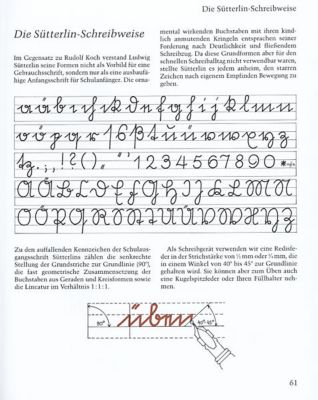 Die Sütterlin-Schreibweise
Die Sütterlin-Schreibweise
Im Gegensatz zu Rudolf Koch verstand Ludwig
Sütterlin seine Formen nicht als Vorbild für eine
Gebrauchsschrift, sondern nur als eine ausbaufä-
hige Anfangsschrift für Schulanfänger. Die orna-
mental wirkenden Buchstaben mit ihren kind-
lich anmutenden Kringeln entsprachen seiner
Forderung nach Deutlichkeit und fließendem
Schreibzug. Da diese Grundformen aber für den
schnellen Schreiballtag nicht verwendbar waren,
stellte Sütterlin es jedem anheim, den starren
Zeichen nach eigenem Empfinden Bewegung zu
geben.
a ä b c d e f g h i j k l m n
o ö p q r s ß t u ü v w x y
z . , ! ? ( ) 1 2 3 4 5 6 7 8 9 0
A Ä B C D E F G H I J K L M N
O Ö P Q R S T U Ü V W X Y Z
Zu den auffallenden Kennzeichen der Schulaus-
gangsschrift Sütterlins zählen die senkrechte
Stellung der Grundstriche zur Grundlinie (90°),
die fast geometrische Zusammensetzung der
Buchstaben aus Geraden und Kreisformen sowie
die Lineatur im Verhältnis 1:1:1.
Als Schreibgerät verwenden wir eine Redisfe-
der in der Strichstärke von ½ mm oder ¾ mm, die
in einem Winkel von 40° bis 45° zur Grundlinie
gehalten wird. Sie können aber zum Üben auch
eine Kugelspitzfeder oder Ihren Füllhalter neh-
men.
90° üben 40°-45°
61